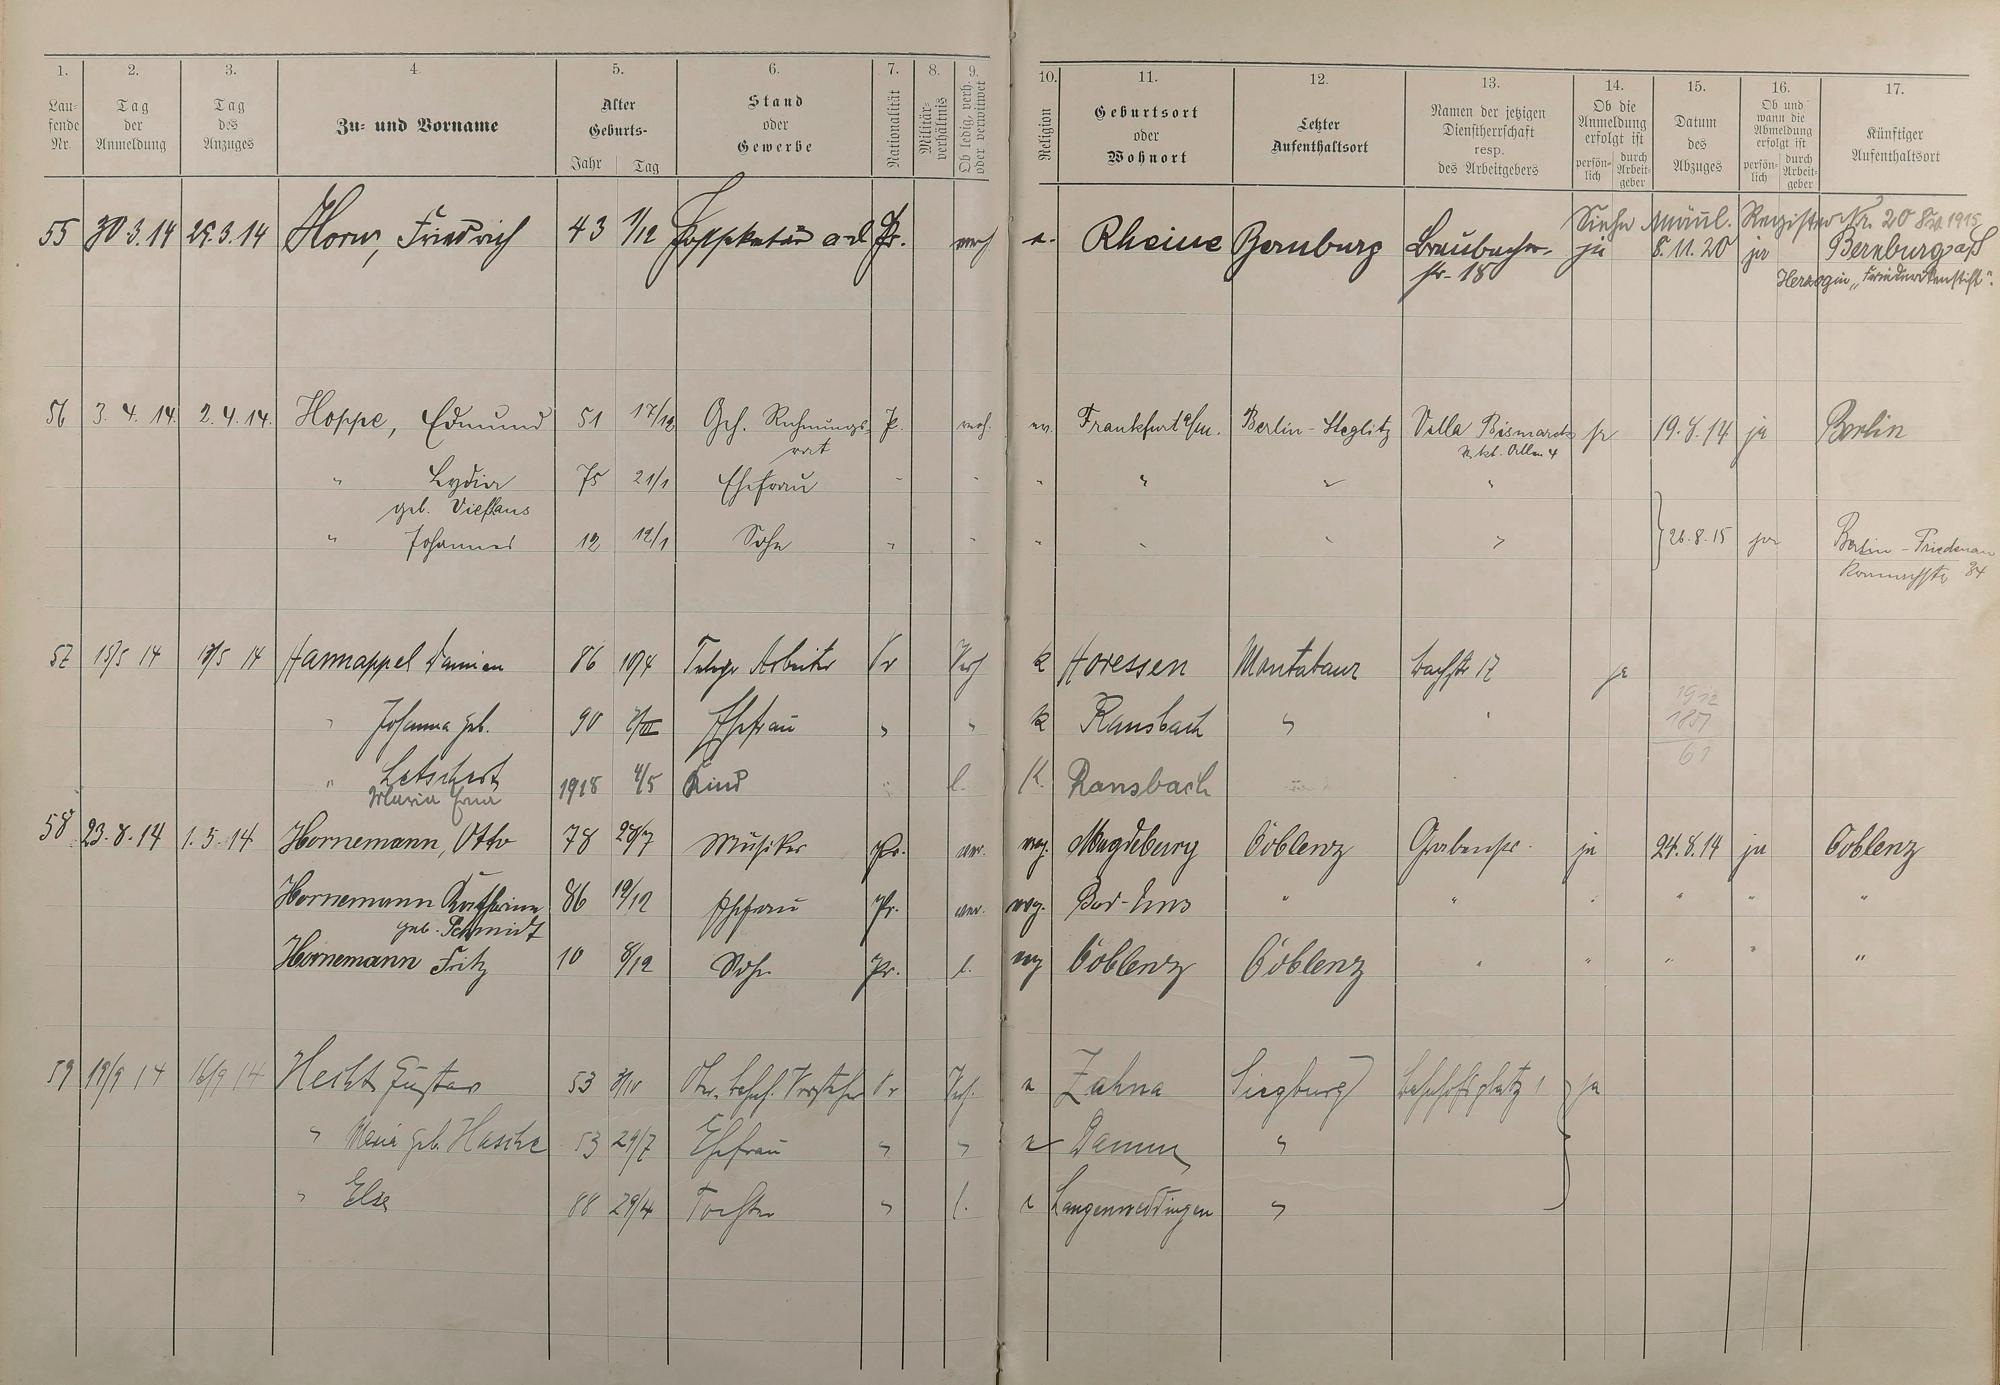 1. 2. 3. 4. 5. 6. 7. 8. 9. 10. 11. 12. 13. 14. 15. 16. 17.
Lau-
fende
Nr.
Tag
der
Anmeldung
Tag
des
Anzuges
Zu- und Vorname
Alter
Geburts-
Jahr Tag
Stand
oder
Gewerbe
Nationalität
Militär-
verhältnis
Ob ledig, verh.
oder verwitwet
Religion
Geburtsort
oder
Wohnort
Letzter
Aufenthaltsort
Namen der jetzigen
Dienstherrschaft
resp.
des Arbeitgebers
Ob die
Anmeldung
erfolgt ist
persön-
lich
durch
Arbeit-
geber
Datum
des
Abzuges
Ob und
wann die
Abmeldung
erfolgt ist
persön-
lich
durch
Arbeit-
geber
Künftiger
Aufenthaltsort
Siehe Register Nr. 20 1915
55 30.3.14 29.3.14 Horn, Friedrich 43 1/12 a.D. Pr. verh e. Rheine Bernburg Braubacher- ja 8.11.20 ja Bernburg
str. 18 Herzogin „Friederikenstift".
56 3.4.14. 2.4.14. Hoppe, Edmund 51 17/12 Geh. Rechnungs- P. verh. ev. Frankfurt a/M. Berlin-Steglitz Villa Bismarck ja 19.8.14 ja Berlin
rat Vikt. Allee 4
" Lydia 75 21/1 Ehefrau " " " " " "
geb.
" Johannes 12 12/1 Sohn " " " " " " } 26.8.15 ja Berlin-Friedenau
84
57 15/5 14 14 Hannappel Damian 86 10/4 Telegr Arbeiter Pr Verh k Horessen Montabaur Bachstr 17 ja
" Johanna geb. 90 Ehefrau " " k Ransbach " "
1912
1851
61
" Letschert 1918 4/5 Kind " l. K. Ransbach
Maria Erna
58 23.8.14 1.5.14 Hornemann, Otto 78 28/7 Musiker Pr. ver. evg. Magdeburg Coblenz Grabenstr. ja 24.8.14 ja Coblenz
Hornemann Katharina 86 19/12 Ehefrau Pr. ver. evg. Bad-Ems " " " " " "
geb. Schmidt
Hornemann Fritz 10 8/12 Sohn Pr. l. evg Coblenz Coblenz " " " " "
59 19/9 14 16/9 14 Hecht Gustav 53 Ober. Bahnh. Vorsteher Pr Verh. e Zahna Siegburg Bahnhofsplatz 1 } ja
" Maria geb. Hasche 53 29/7 Ehefrau " " e Damm "
" Else 88 29/4 Tochter " l. e Langenweddingen "